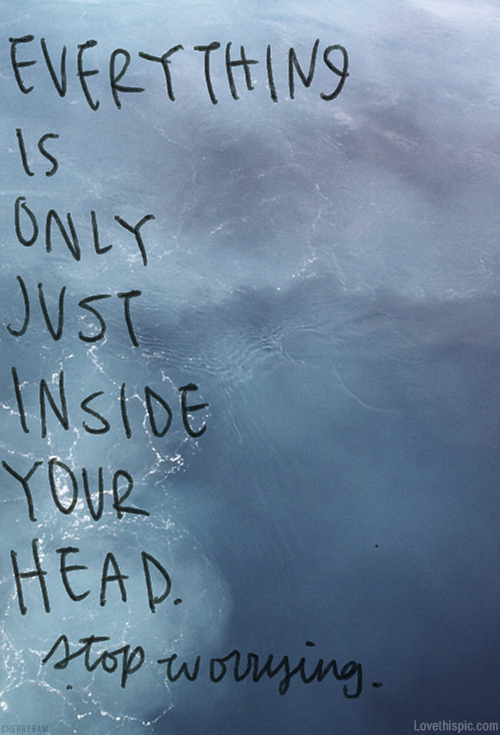 EVERYTHING
IS
ONLY
JUST
INSIDE
YOUR
HEAD.
stop worrying.
CHERRYBAM
Lovethispic.com